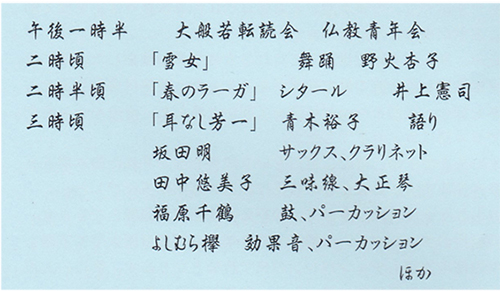 午後一時半　大般若転読会　仏教青年会
二時頃　「雪女」　舞踊　野火杏子
二時半頃　「春のラーガ」　シタール　井上憲司
三時頃　「耳なし芳一」　青木裕子　語り
坂田明　サックス、クラリネット
田中悠美子　三味線、大正琴
福原千鶴　鼓、パーカッション
よしむら欅　効果音、パーカッション
ほか